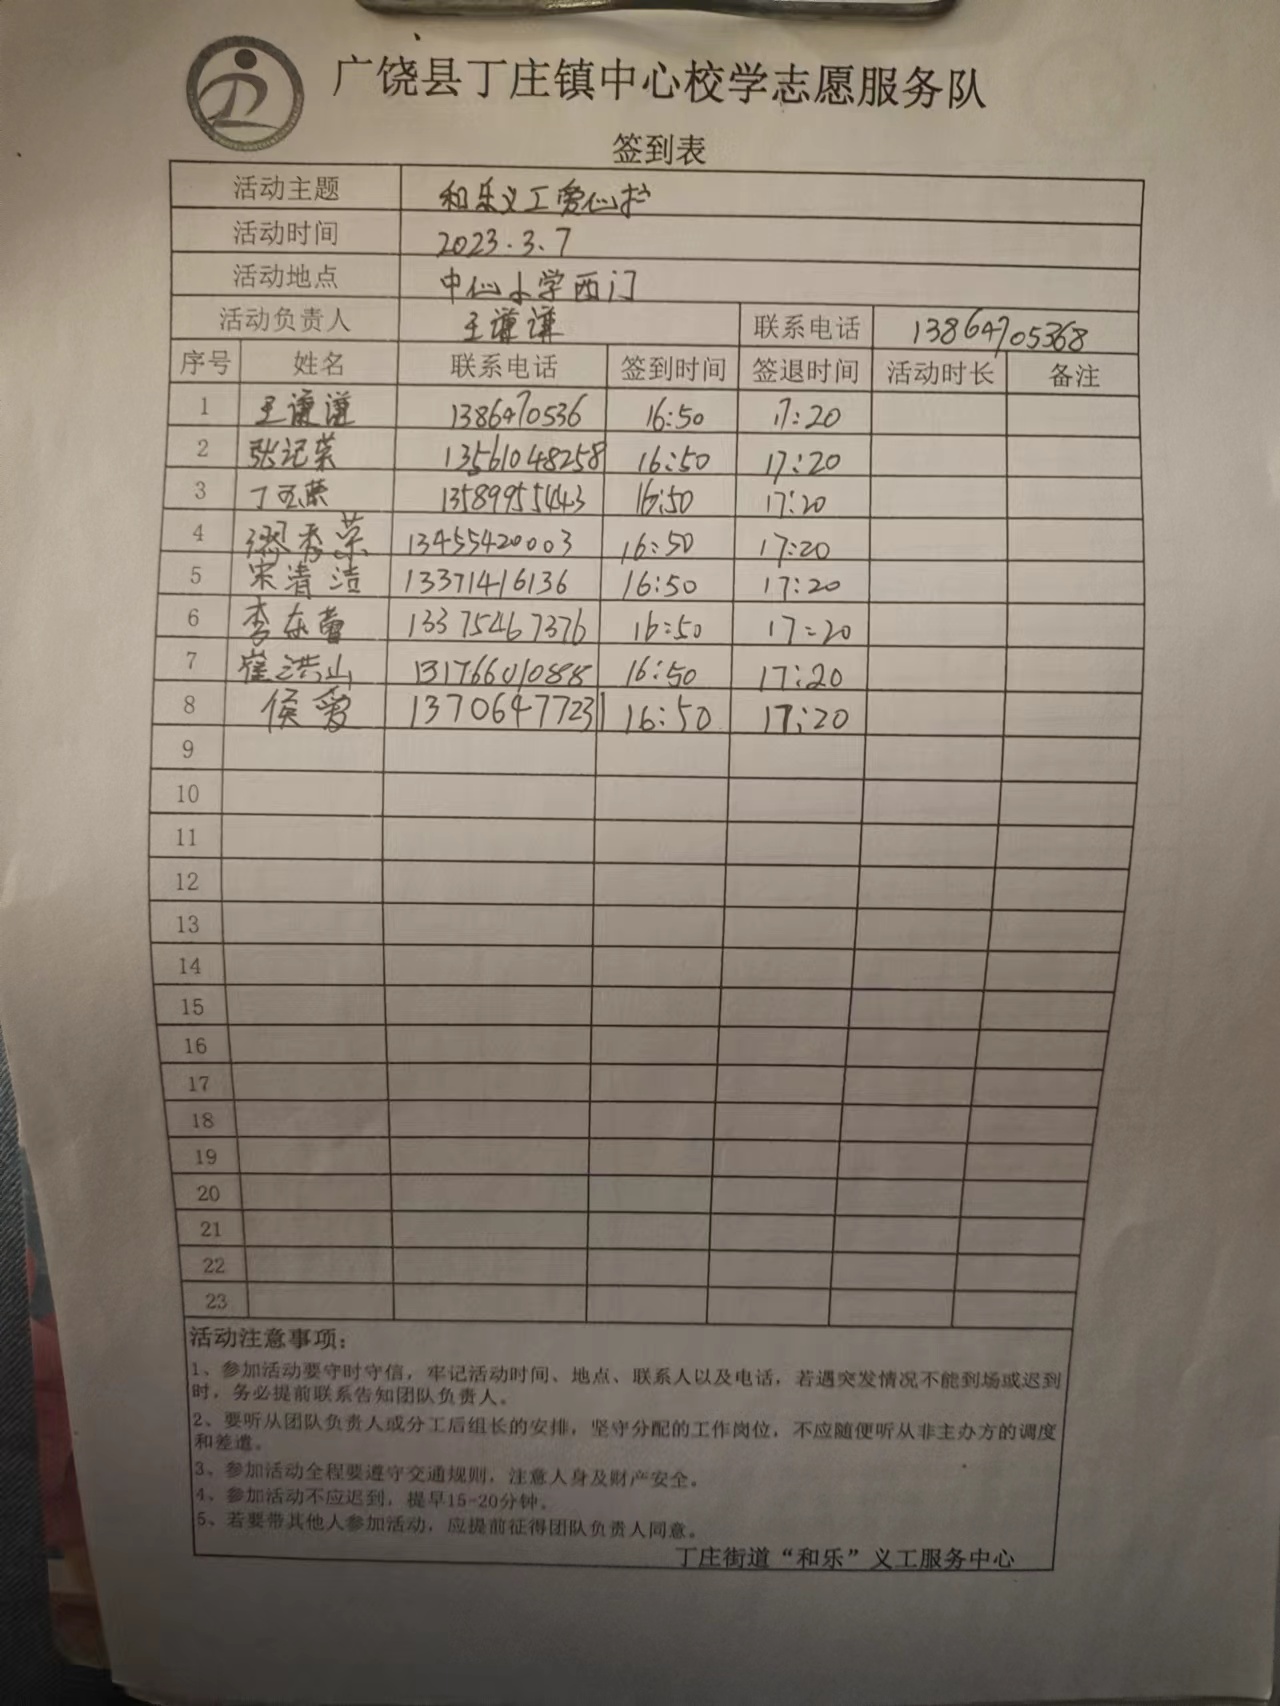 广饶县丁庄镇中心校学志愿服务队
签到表
活动主题 和乐义工爱心护
活动时间 2023.3.7
活动地点 中心小学西门
活动负责人 王谦谦 联系电话 13864705368
序号 姓名 联系电话 签到时间 签退时间 活动时长 备注
1 王谦谦 1386470536 16:50 17:20
2 张记荣 13561048258 16:50 17:20
3 丁玉燕 13589955443 16:50 17:20
4 缪秀荣 13455420003 16:50 17:20
5 宋清洁 13371416136 16:50 17:20
6 李东蕾 13375467376 16:50 17:20
7 崔洪山 13176601088 16:50 17:20
8 侯爱 13706477231 16:50 17:20
9
10
11
12
13
14
15
16
17
18
19
20
21
22
23
活动注意事项：
1、参加活动要守时守信，牢记活动时间、地点、联系人以及电话，若遇突发情况不能到场或迟到
时，务必提前联系告知团队负责人。
2、要听从团队负责人或分工后组长的安排，坚守分配的工作岗位，不应随便听从非主办方的调度
和差遣。
3、参加活动全程要遵守交通规则，注意人身及财产安全。
4、参加活动不应迟到，提早15-20分钟。
5、若要带其他人参加活动，应提前征得团队负责人同意。
丁庄街道“和乐”义工服务中心